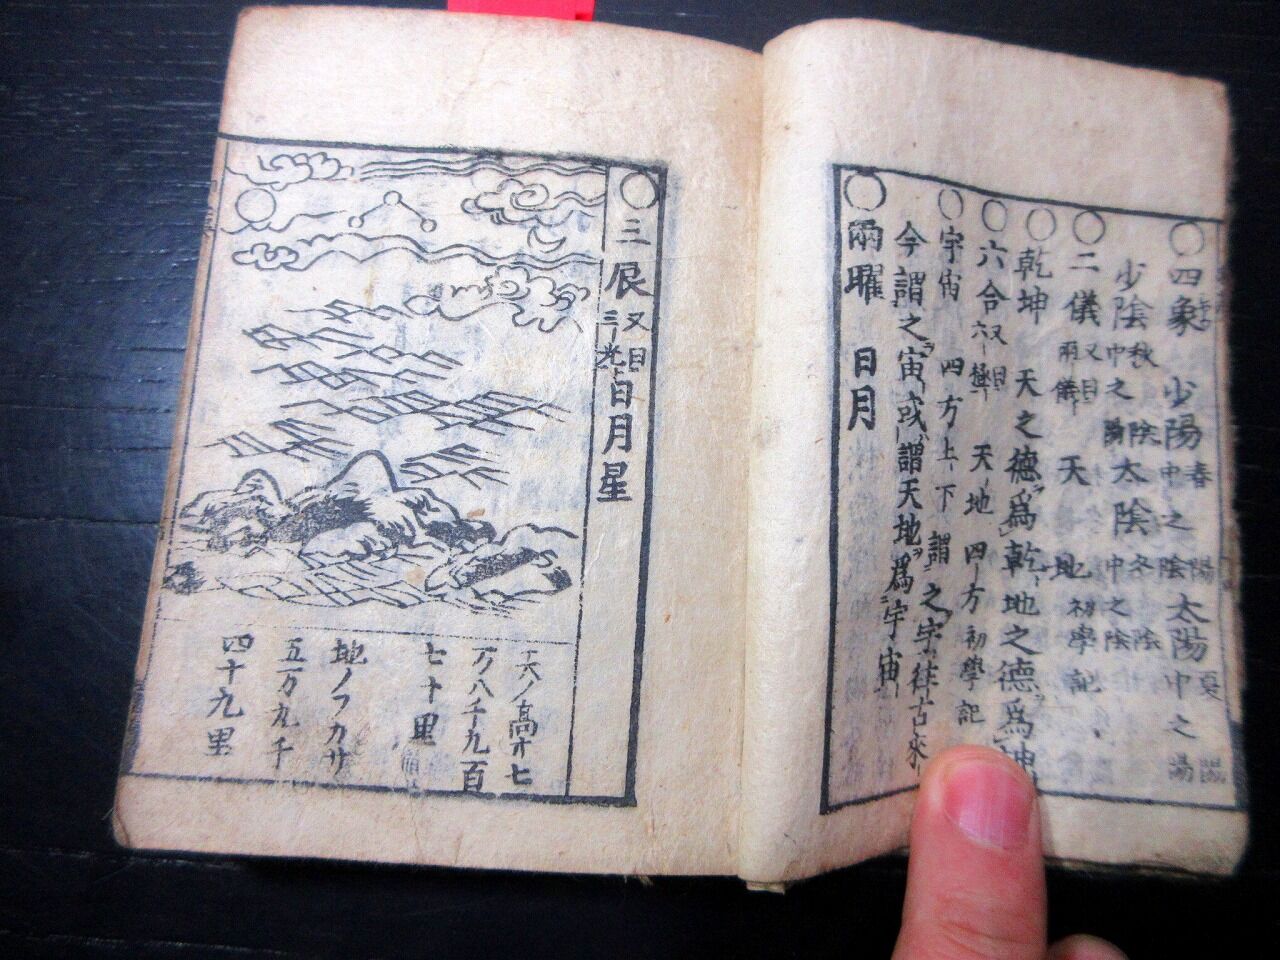 四象 少陽 春 中之 陽陰 太陽 夏 中之 陽陽
少陰 秋 中之 陰陽 太陰 冬 中之 陰陰
二儀 又曰 両儀 天地 初學記
乾坤 天之德爲乾地之德爲坤
六合 又曰 六極 天地四方 初學記
宇宙 四方上下謂之宇往古來
今謂之宙或謂天地爲宇宙
兩曜 日月
三辰 又曰 三光 日月星
高サ七
万八千九百
七十里
地ノフカサ
五万九千
四十九里